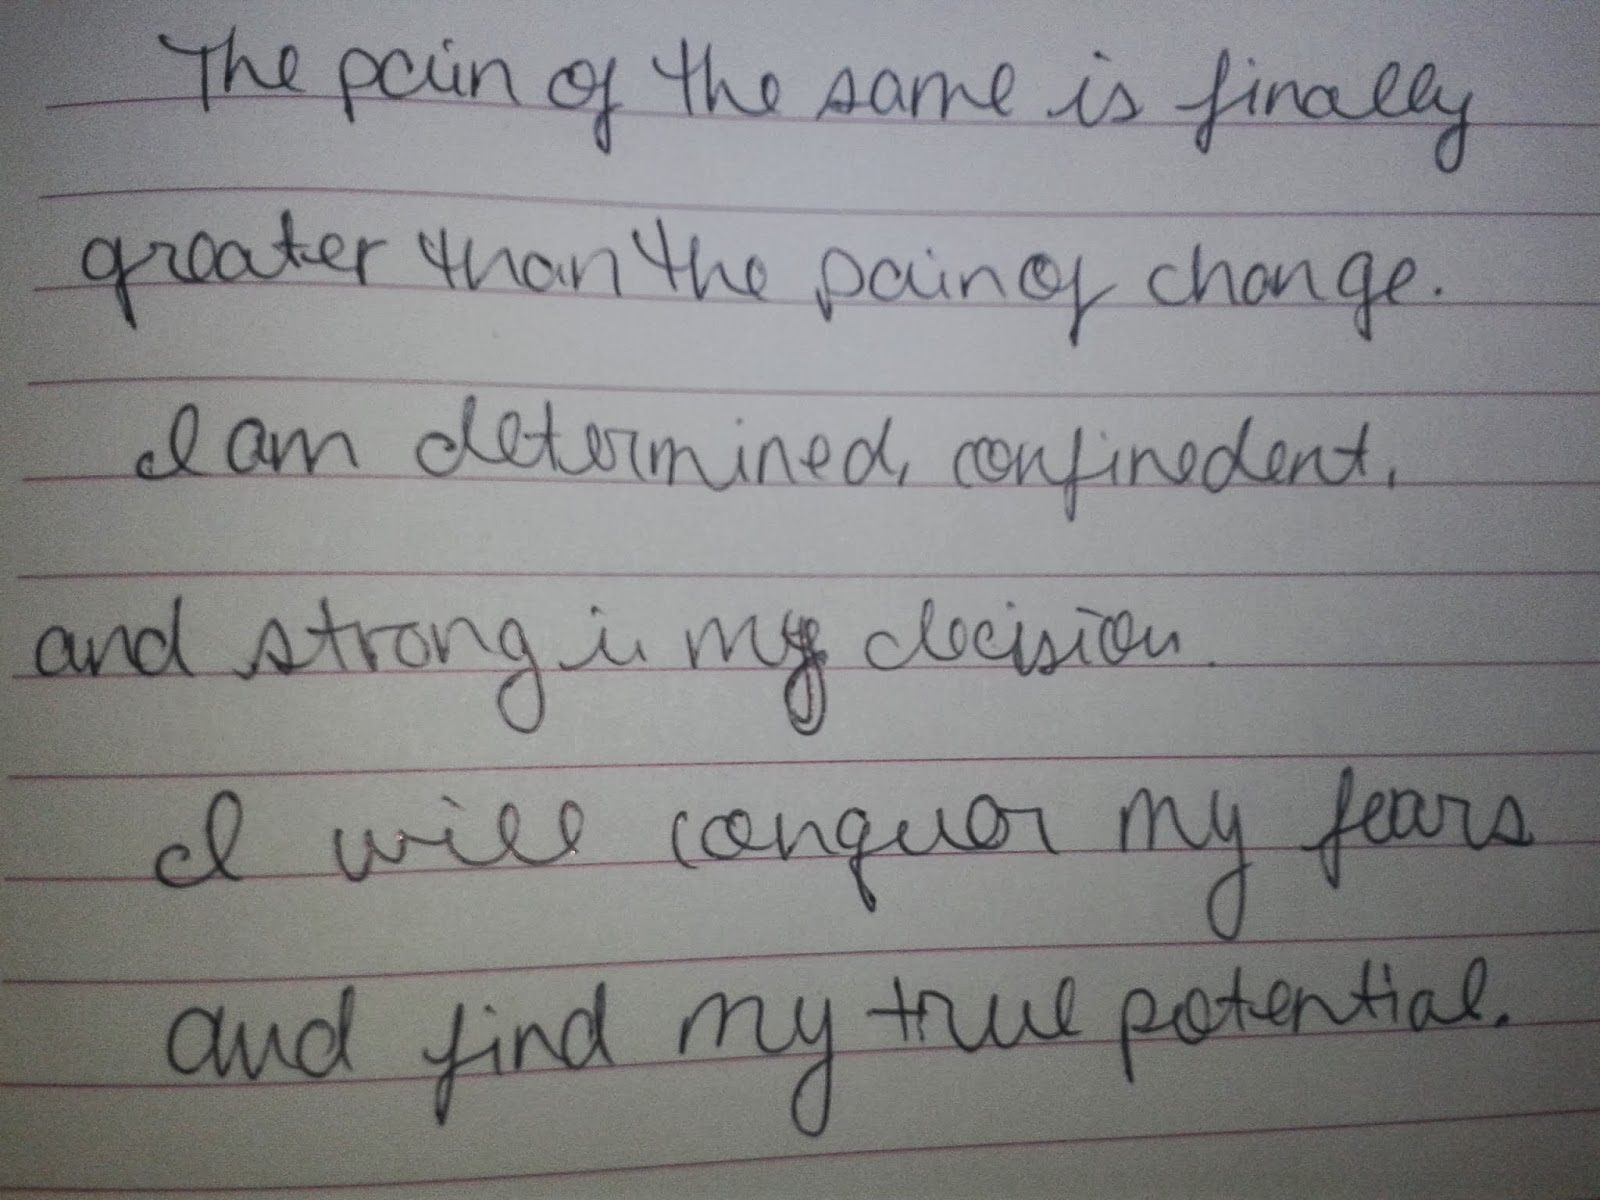 The pain of the same is finally
greater than the pain of change.
I am determined, confinedent,
and strong in my decision.
I will conquer my fears
and find my true potential.